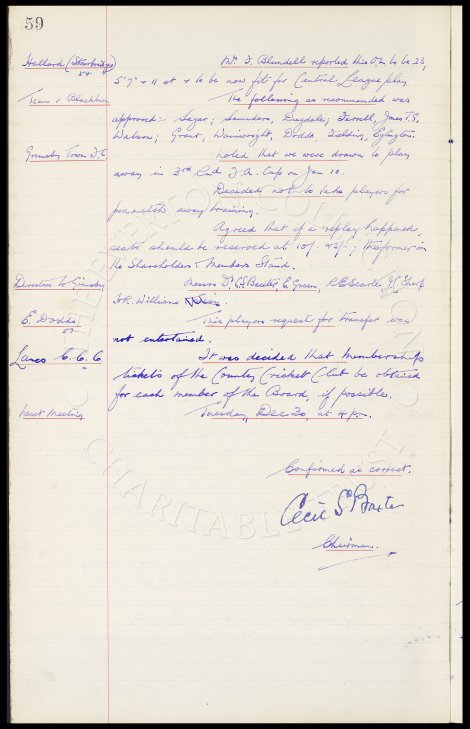 59
Hallard (Stourbridge) Mr. F. Blundell reported this O.L. to be 23,
54
5' 7" & 11 st & to be now fit for Central League play.
Team v Blackburn The following as recommended was
approved: Sagar; Saunders, Dugdale; Farrell, Jones T.G,
Watson; Grant, Wainwright, Dodds, Fielding, Eglington.
Grimsby Town F.C. Noted that we were drawn to play
away in 3rd Rnd F.A. Cup on Jan 10.
Decided not to take players for
pre-match away training.
Agreed that if a replay happened,
seats should be reserved at 10/- & 7/-; the former in
the Shareholders & Members Stand.
Directors to Grimsby Messrs Dr. C.S. Baxter, E. Green, R.E. Searle, J.C. Sharp
A.R. Williams
E. Dodds This players request for transfer was
57.
not entertained.
Lancs C. C. C. It was decided that Membership
tickets of the County Cricket Club be obtained
for each member of the Board, if possible.
Next Meeting Tuesday, Dec 30, at 4 p.m.
Confirmed as correct.
Cecil S Baxter
Chairman.
THE EVERTON COLLECTION
CHARITABLE TRUST